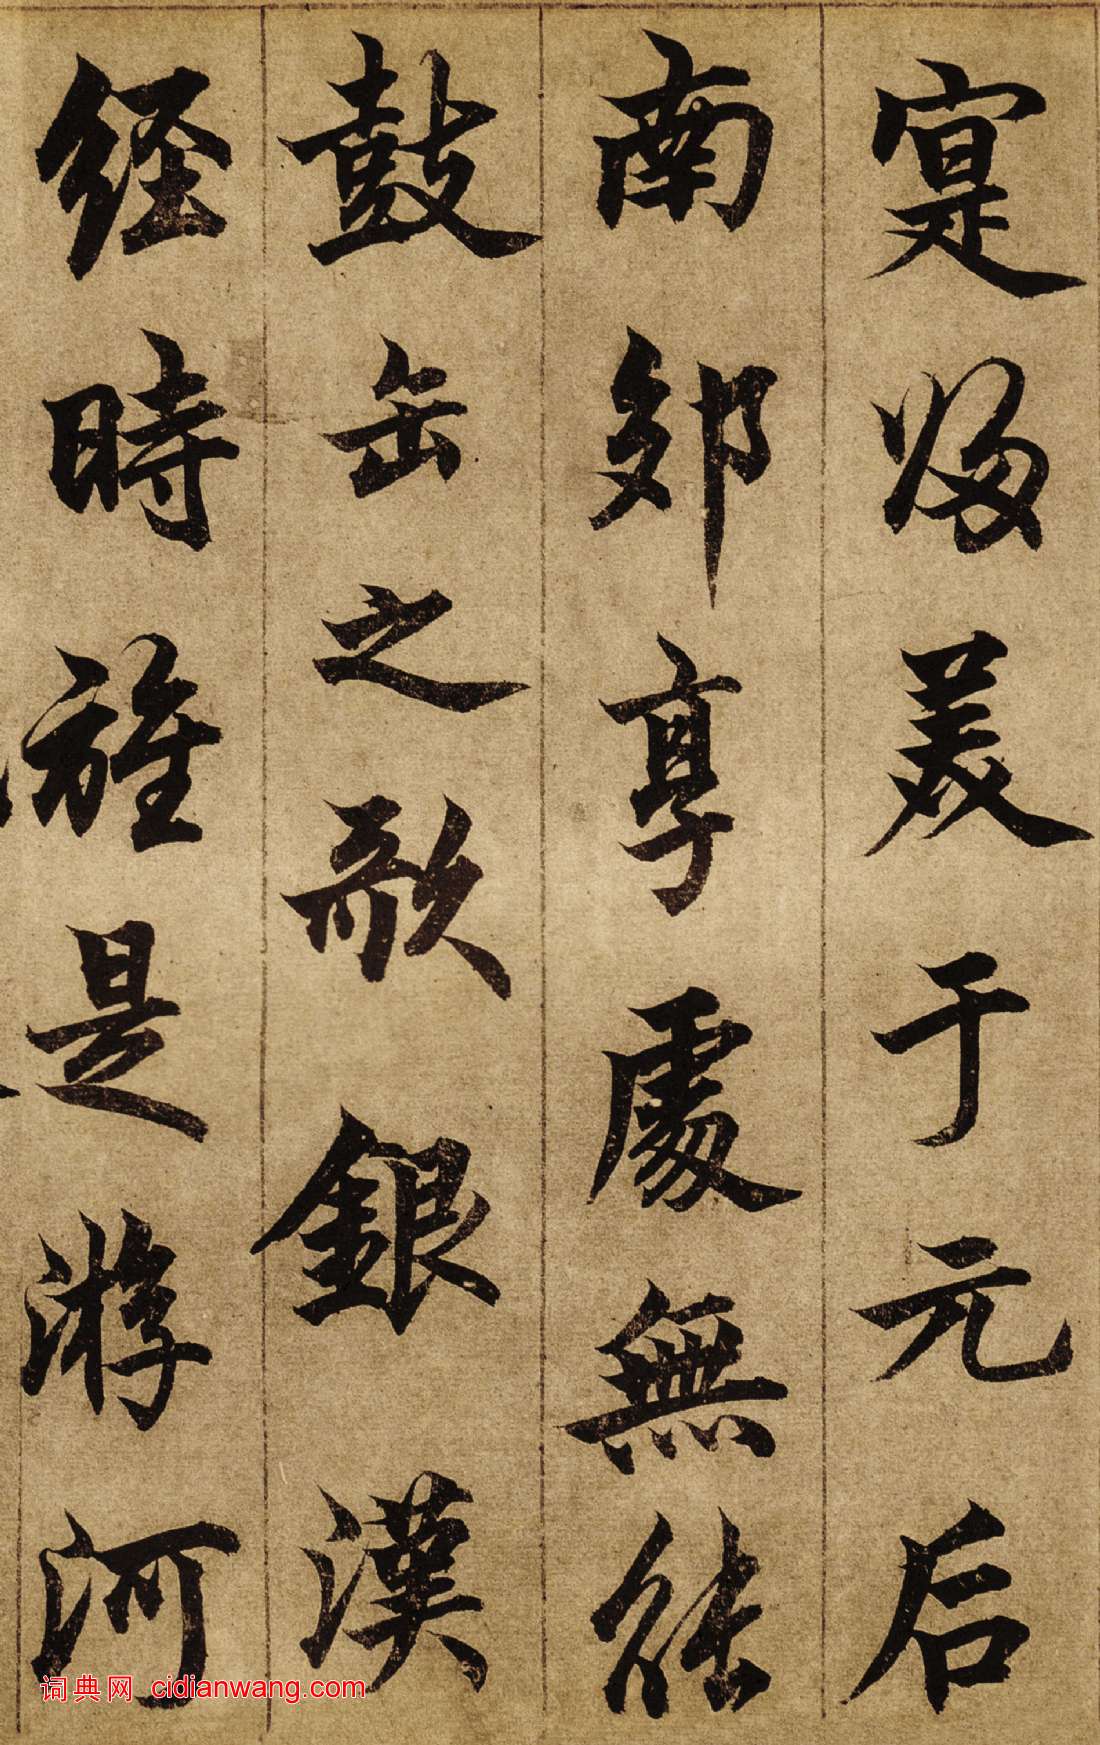 寔归美于元后
南郊享處無能
鼓缶之歌銀漢
經時旌是游河
词典网 cidianwang.com